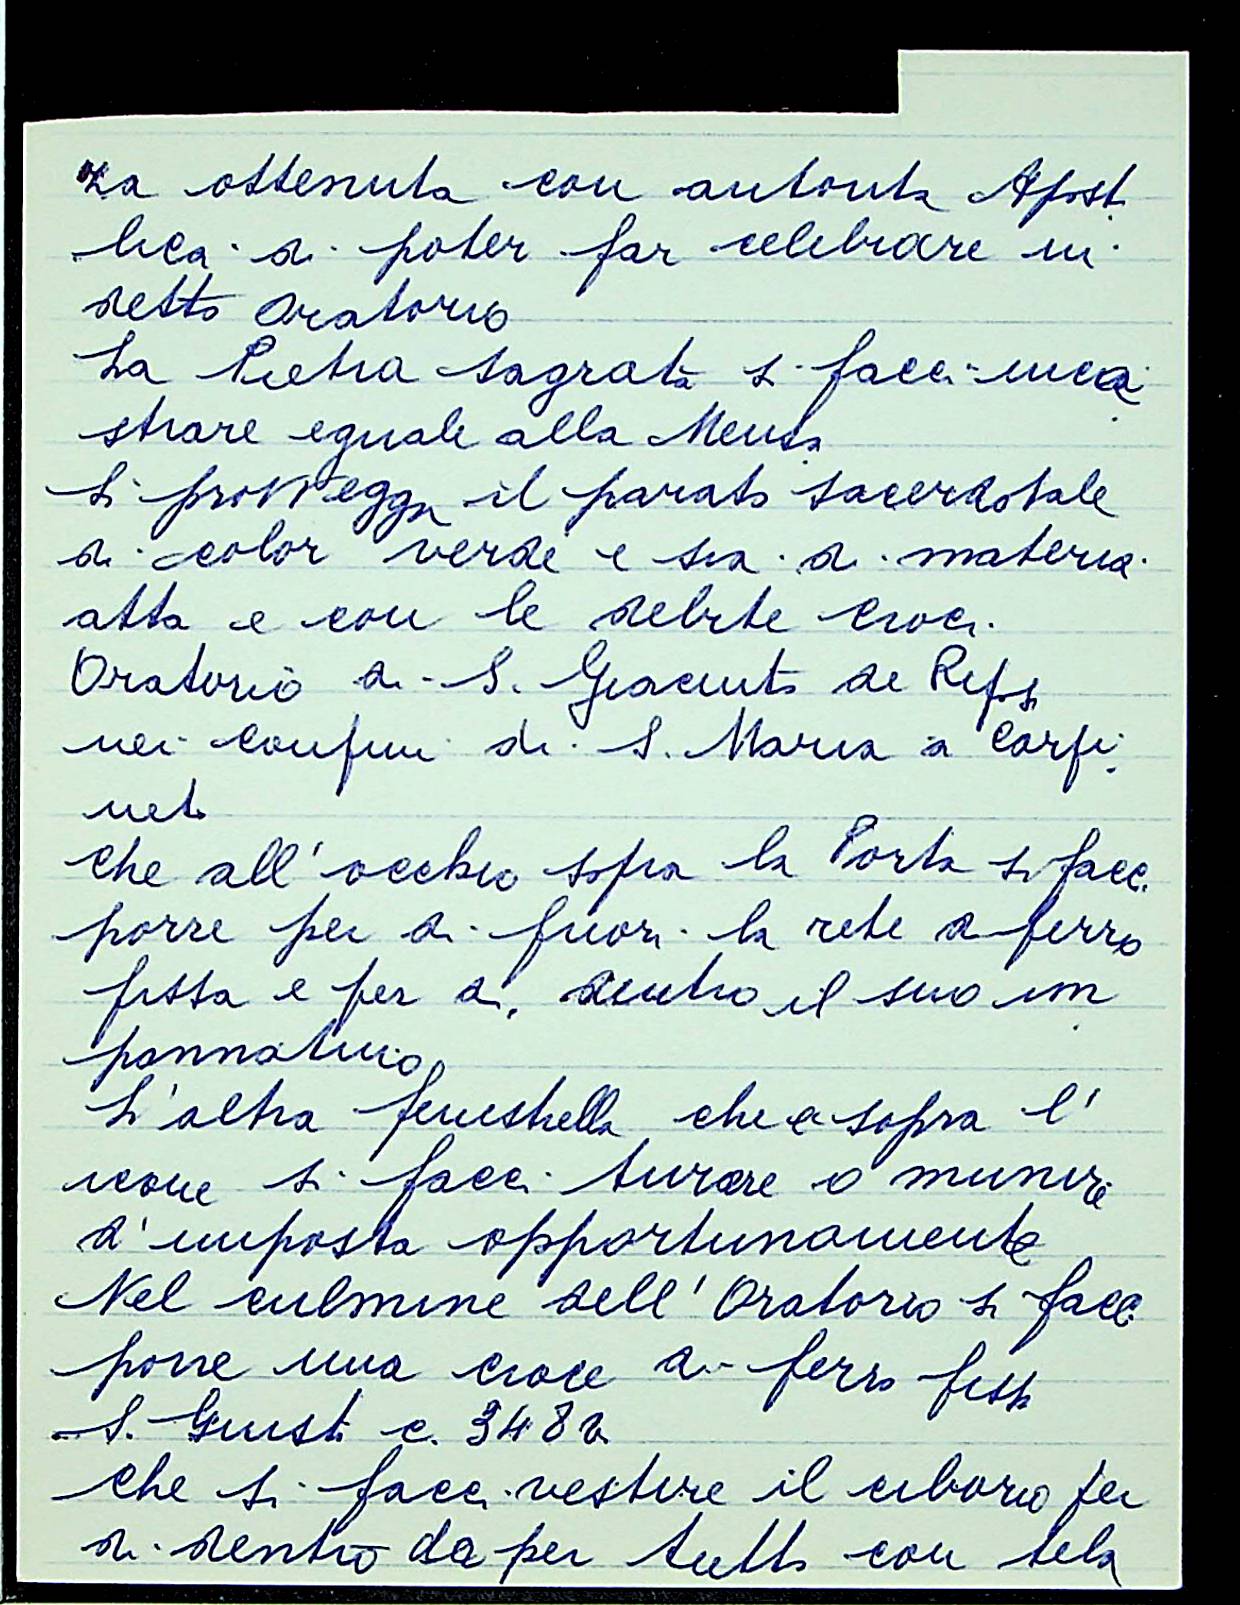 za ottenuta con autorità Aposto
lica di poter far celebrare in
detto Oratorio
La Pietra sagrata si facci inca
strare eguale alla Mensa
Si provvegga il parato sacerdotale
di color verde e sia di materia
atta e con le debite croci.
Oratorio di S. Giacinto de Rifosi
nei confini di S. Maria a Carpi
neto
che all'occhio sopra la Porta si facci
porre per di fuori la rete di ferro
fissa e per di dentro il suo im
pannaturio
L'altra fenestrella che è sopra l'
icone si facci turare o munire
d'imposta opportunamente
Nel culmine dell'Oratorio si facci
porre una croce di ferro fissa
S. Giusto c. 348v
che si facci vestire il ciborio per
di dentro da per tutto con tela